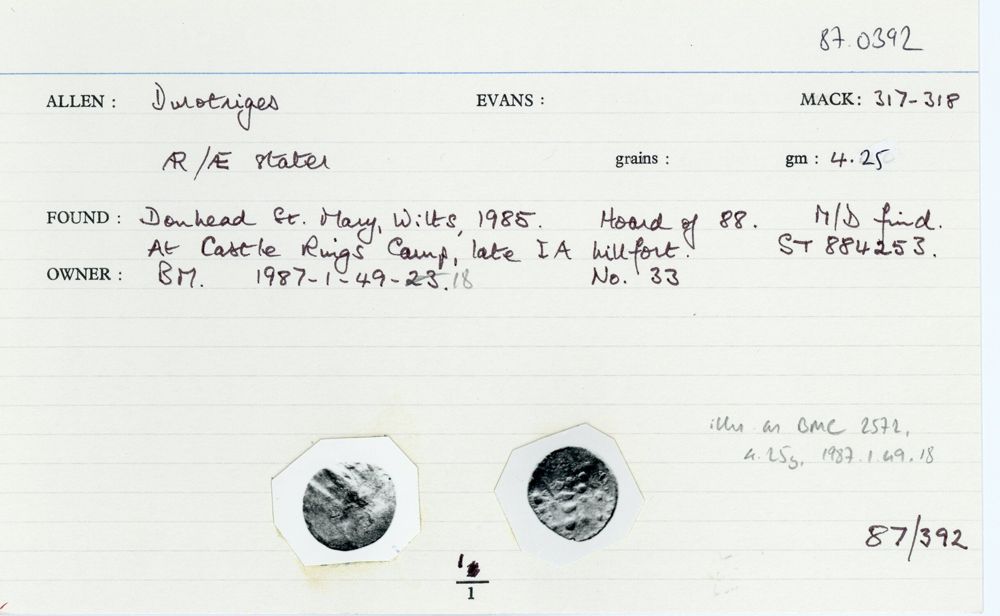 87.0392
ALLEN : Durotriges EVANS : MACK: 317-318
ÆR/Æ stater grains : gm : 4.25
FOUND : Donhead St. Mary, Wilts, 1985. Hoard of 88. M/D find.
At Castle Rings Camp, late IA hillfort. ST 884253.
OWNER : BM. 1987-1-49-23.18 No. 33
illus as BMC 2572,
4.25g, 1987.1.49.18
87/392
1
1